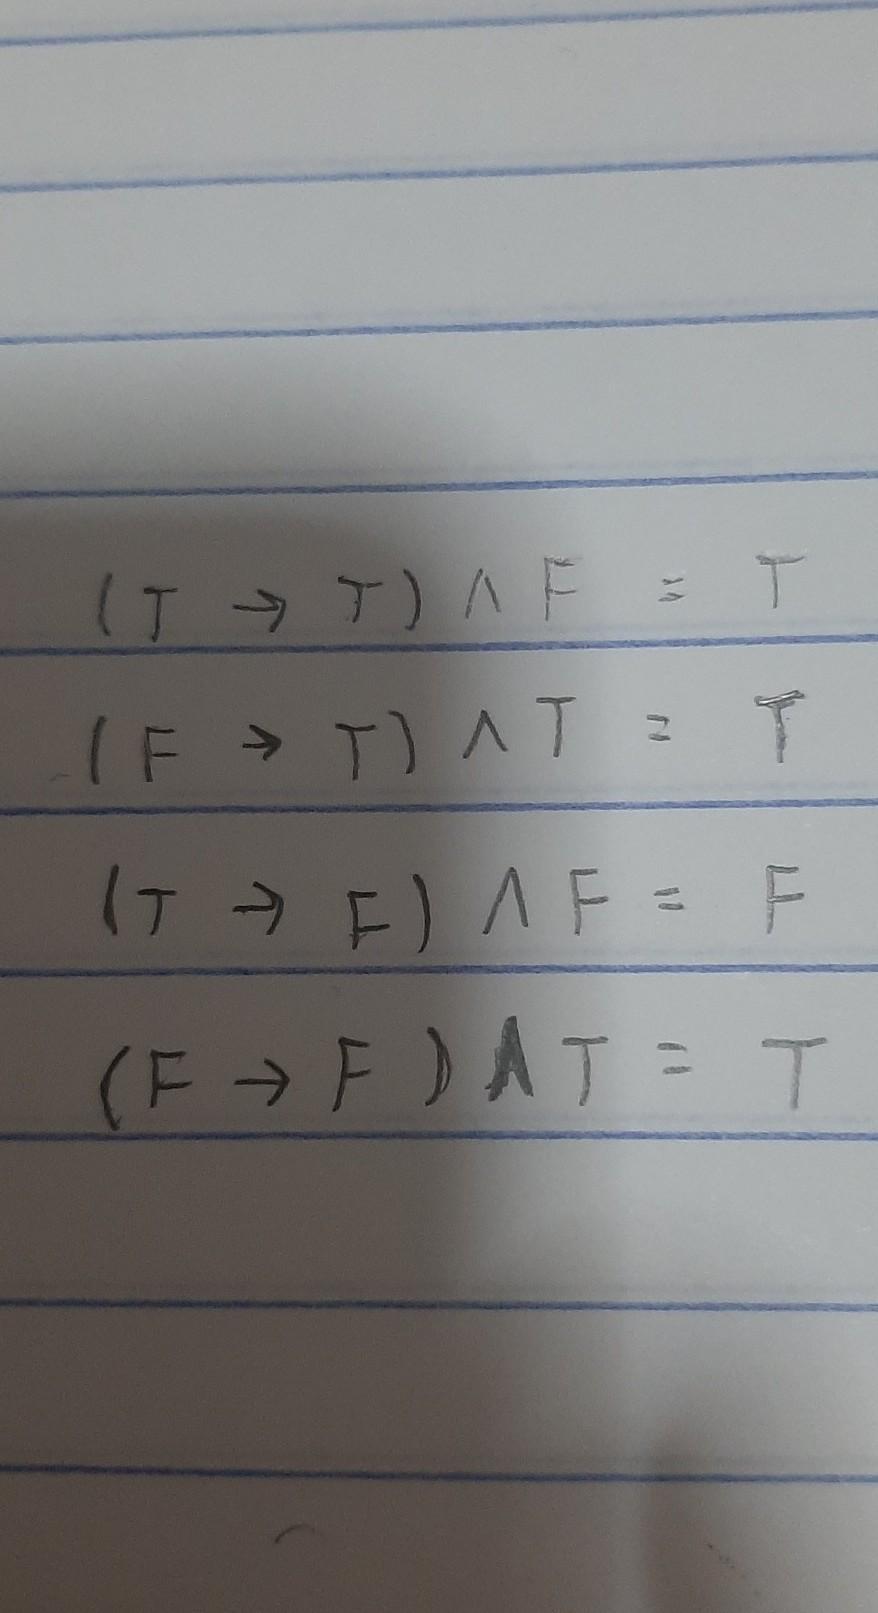 (T → T) ∧ F = T
(F → T) ∧ T = T
(T → F) ∧ F = F
(F → F) ∧ T = T